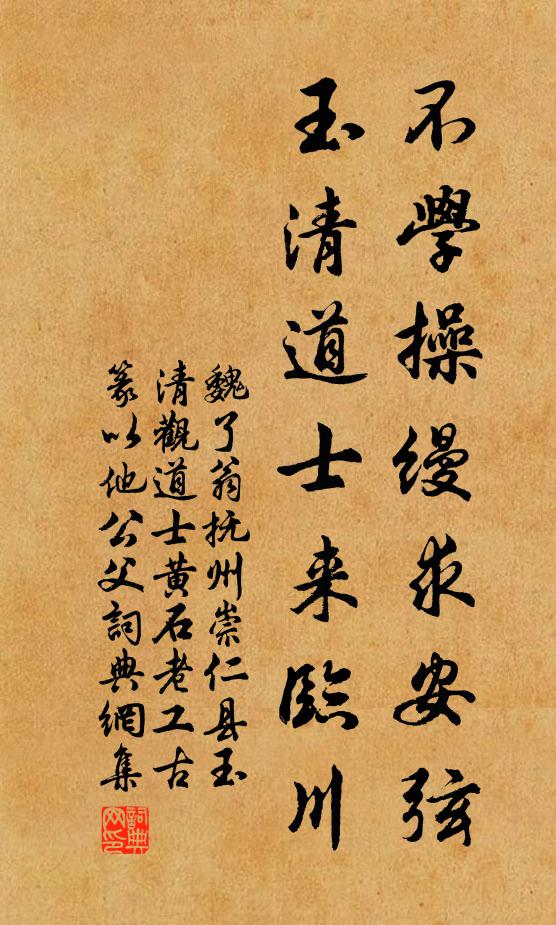 不學操缦求安弦
玉清道士来臨川
魏了翁抚州崇仁县玉
清觀道士黄石老工古
篆以他公父詞典網集
詞典网印